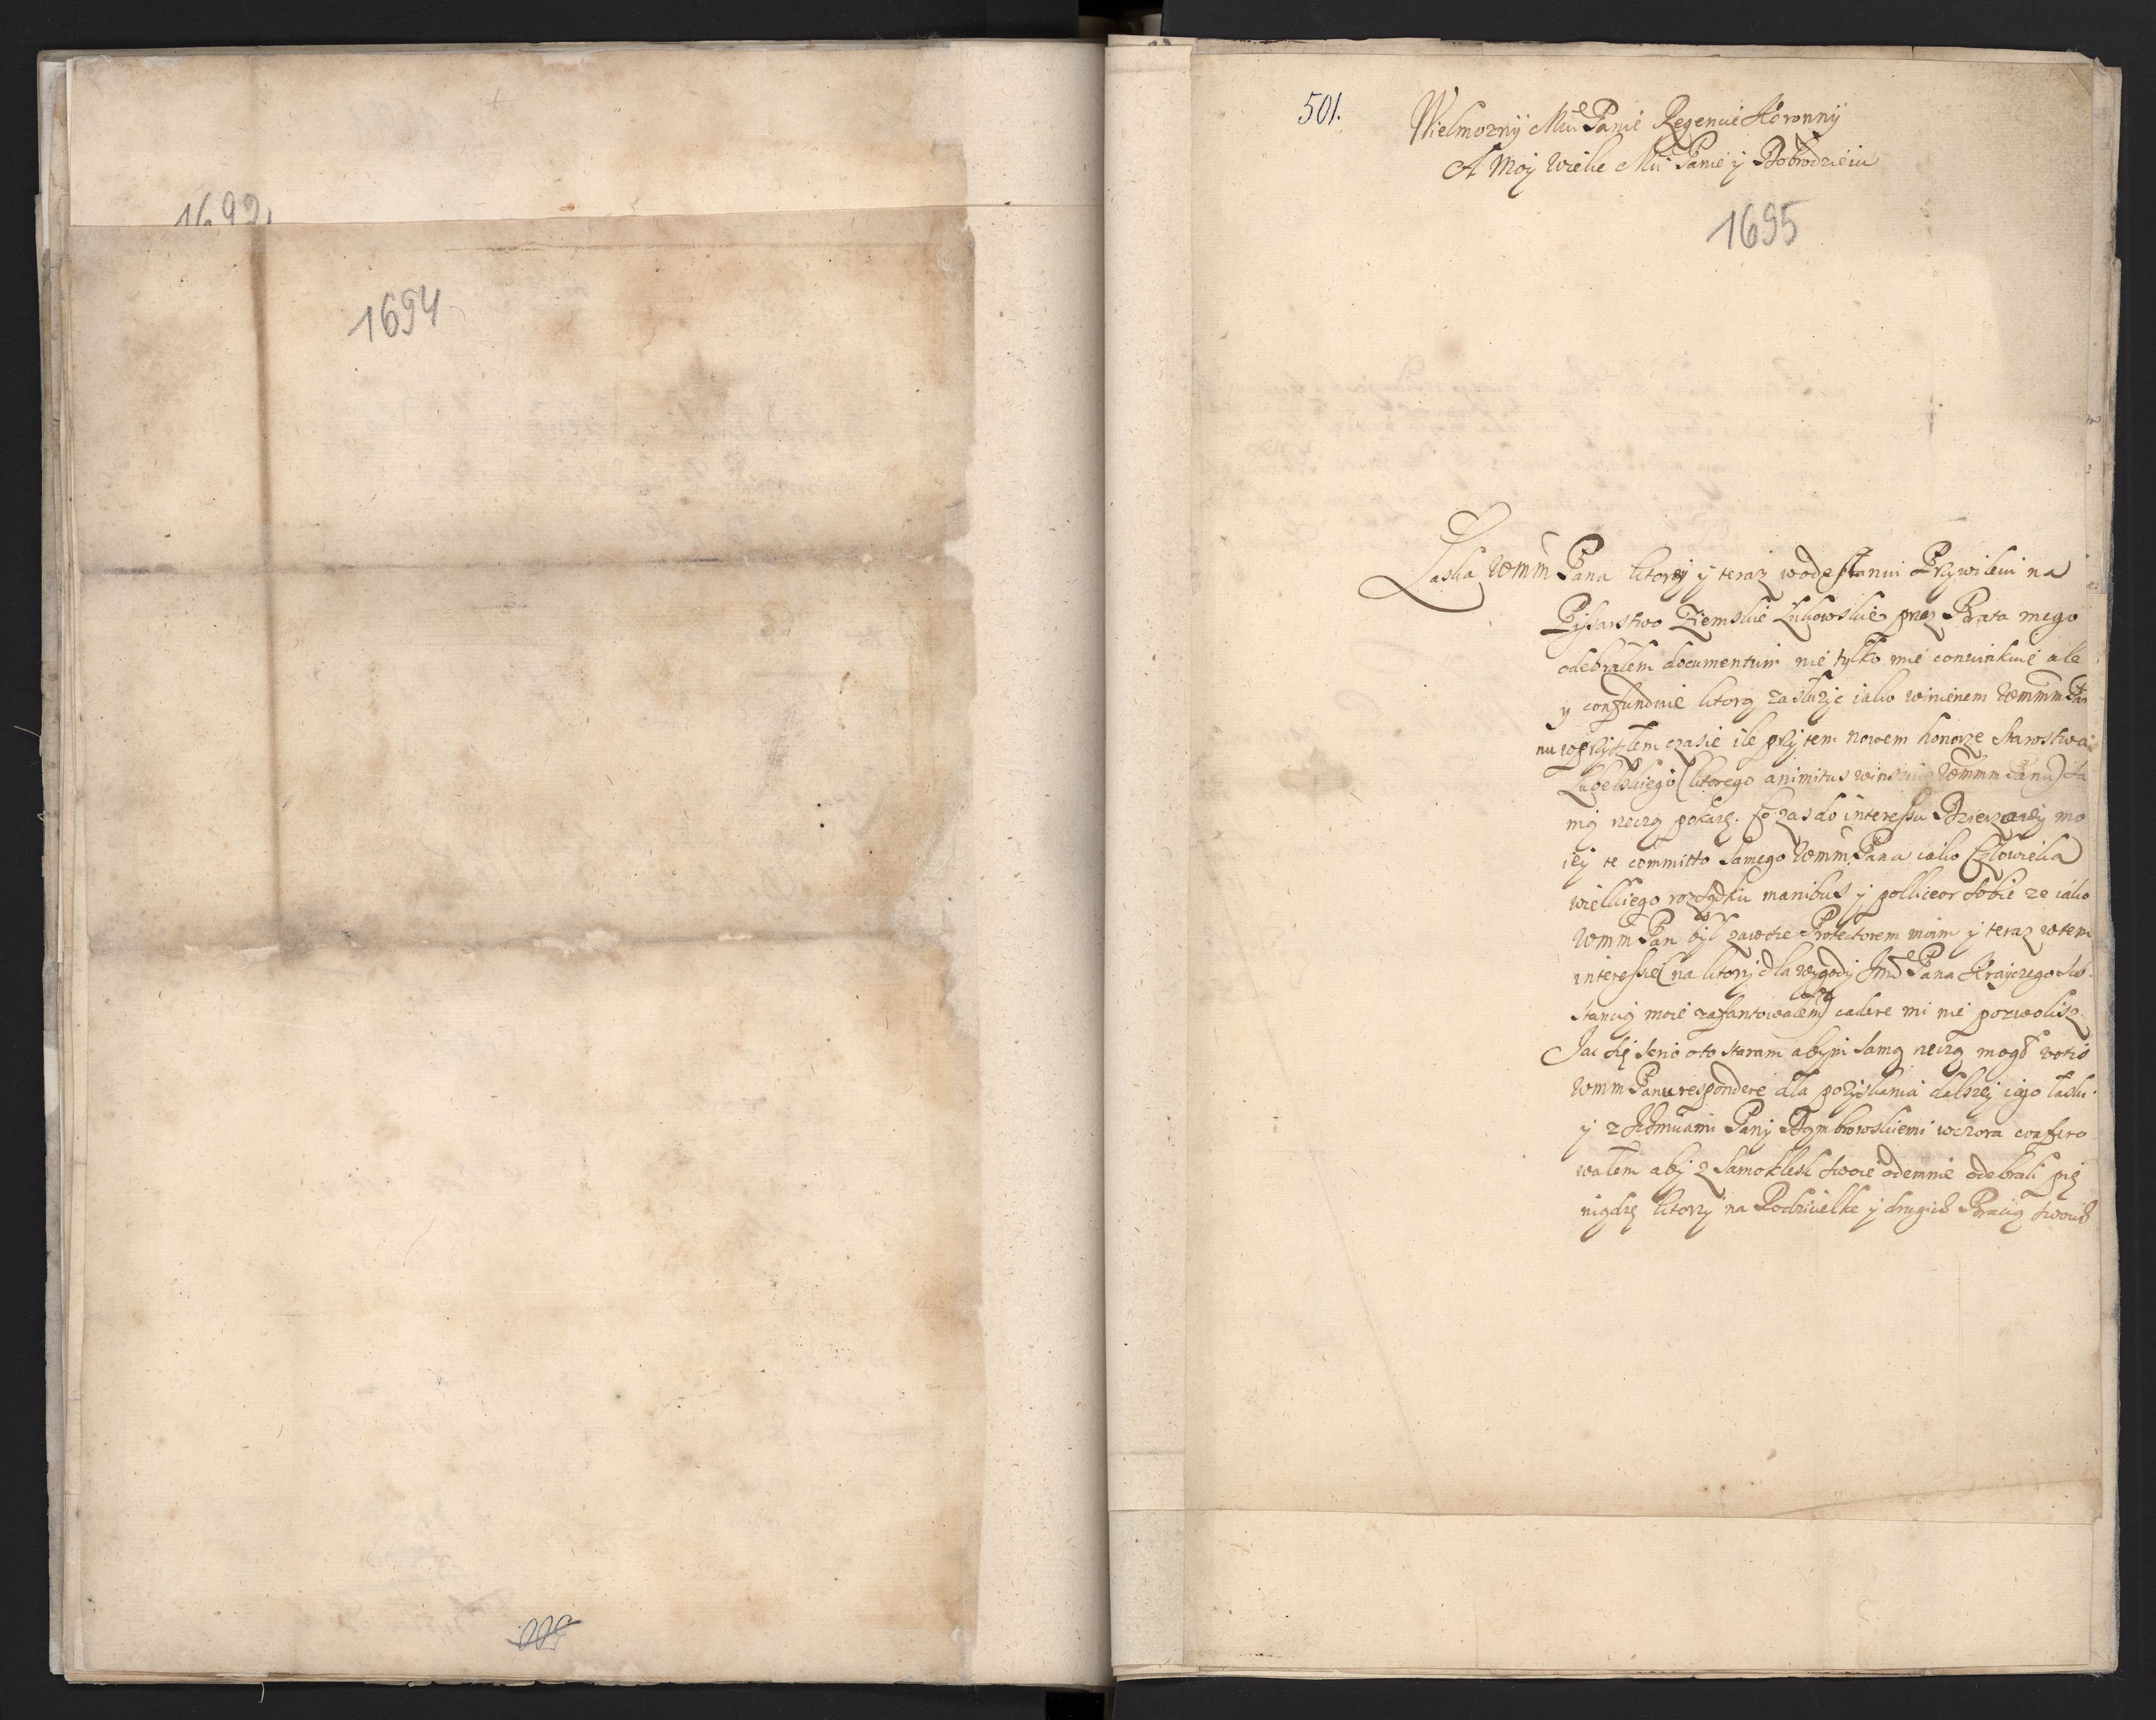 1692.
1694
501.
Wielmozny Mci Panie Regencie Koronny
A Moy Wielce Mci Panie y Dobrodzieiu
1695
Laska WMM Pana ktorey y teraz w odesłaniu Przywileiu na
Pysarstwo Ziemskie Lukowskie przez Brata mego
odebrałem documentum nie tylko mie conuinkuie ale
y confunduie ktorą zasłuzyc iako winienem WMMM Pa
nu w przyszłem czasie ile przy tem nowem honorze Starostwa
Lubelskiego (ktorego animitus winszuię WMMM Panu) sa
mą rzeczą pokazę. Co zas do interessu Dzierzawy mo
iey te committo samego WMM Pana iako Człowieka
wielkiego rozsądku manibus y polliceor sobie ze iako
WMM Pan był zawsze Protectorem moim y teraz w tem
interessie (na ktory dla wygody Jmci Pana Krayczego sub
stancią moie zafantowałem) cadere mi nie pozwolisz
Ja się serio o to staram abym samą rzeczą mogł votis
WMM Panu respondere dla pozyskania dalszey iego łaski
y z Ichmciami Pany Dąmbrowskiemi wczora confero
wałem aby z Samoklesk swoie odemnie odebrali pie
niądze ktorzy na Rodzicielke y drugich Bracią swoich